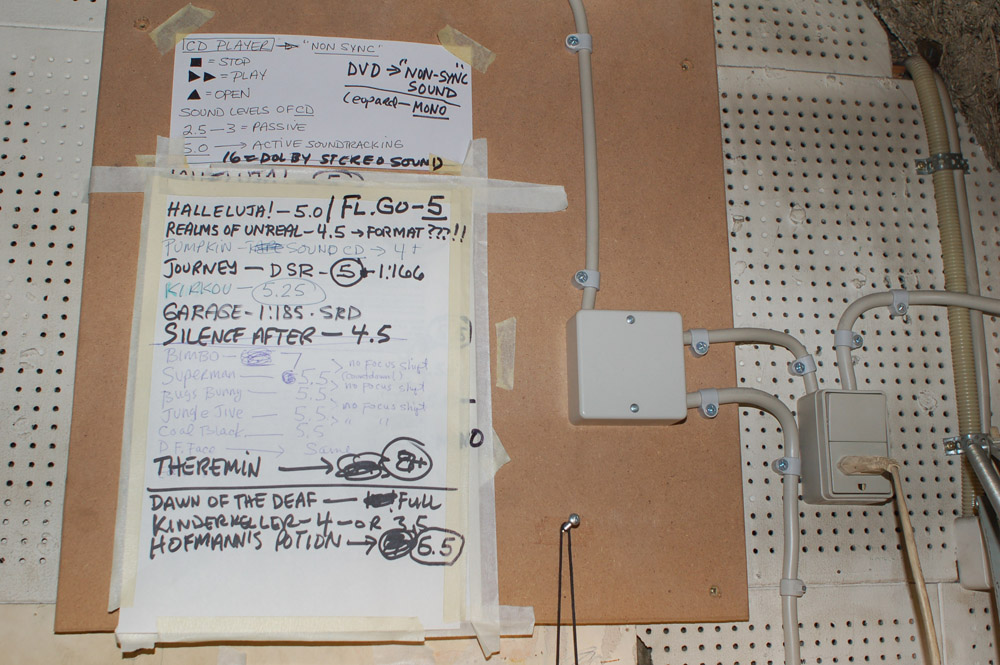 CD PLAYER → "NON SYNC"
■ = STOP
▶▶ = PLAY
▲ = OPEN
DVD → "NON-SYNC"
SOUND
Leopard — MONO
SOUND LEVELS OF CD
2.5 — 3 = PASSIVE
5.0 → ACTIVE SOUNDTRACKING
16 = DOLBY STEREO SOUND
HALLELUJA! — 5.0 / FL.GO — 5
REALMS OF UNREAL — 4.5 → FORMAT ???!!
PUMPKIN — SOUND CD → 4+
JOURNEY — DSR — 5 — 1:166
KIRKOU — 5.25
GARAGE — 1:185 · SRD
SILENCE AFTER — 4.5
BIMBO — 7
Superman — 5.5 no focus shift
(countdown!)
Bugs Bunny — 5.5 no focus shift
Jungle Jive — 5.5 no focus shift
Coal Black — 5.5 " "
D.F. Face → Same
THEREMIN → 8+
DAWN OF THE DEAF — FULL
KINDERKELLER — 4 — OR 3,5
HOFMANN'S POTION → 6.5